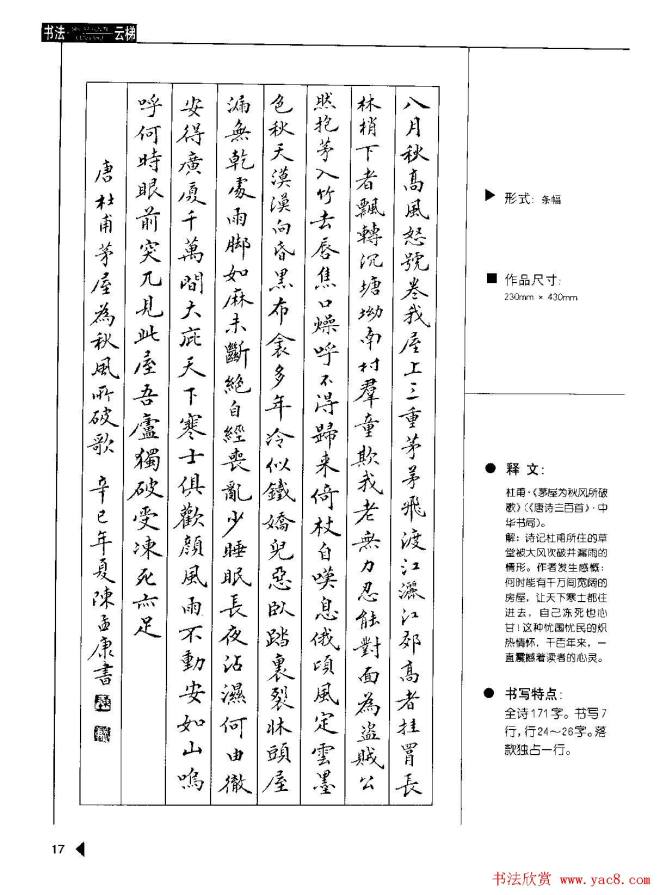 书法·云梯
八月秋高風怒號卷我屋上三重茅茅飛渡江灑江郊高者挂罥長
林梢下者飄轉沉塘坳南村羣童欺我老無力忍能對面為盜賊公
然抱茅入竹去唇焦口燥呼不得歸来倚杖自嘆息俄頃風定雲墨
色秋天漠漠向昏黑布衾多年冷似鐵嬌兒惡臥踏裏裂牀頭屋
漏無乾處雨脚如麻未斷絕自經喪亂少睡眠長夜沾濕何由徹
安得廣廈千萬間大庇天下寒士俱歡顔風雨不動安如山嗚
呼何時眼前突兀見此屋吾廬獨破受凍死亦足
唐杜甫茅屋為秋風所破歌 辛巳年夏陳孟康書
形式: 条幅
作品尺寸:
230mm × 430mm
释文:
杜甫·《茅屋为秋风所破
歌》(《唐诗三百首》·中
华书局)。
解: 诗记杜甫所住的草
堂被大风吹破并漏雨的
情形。作者发生感慨:
何时能有千万间宽阔的
房屋, 让天下寒士都住
进去, 自己冻死也心
甘! 这种忧国忧民的炽
热情怀, 千百年来, 一
直震撼着读者的心灵。
书写特点:
全诗171字。书写7
行, 行24～26字。落
款独占一行。
17
书法欣赏 www.yac8.com